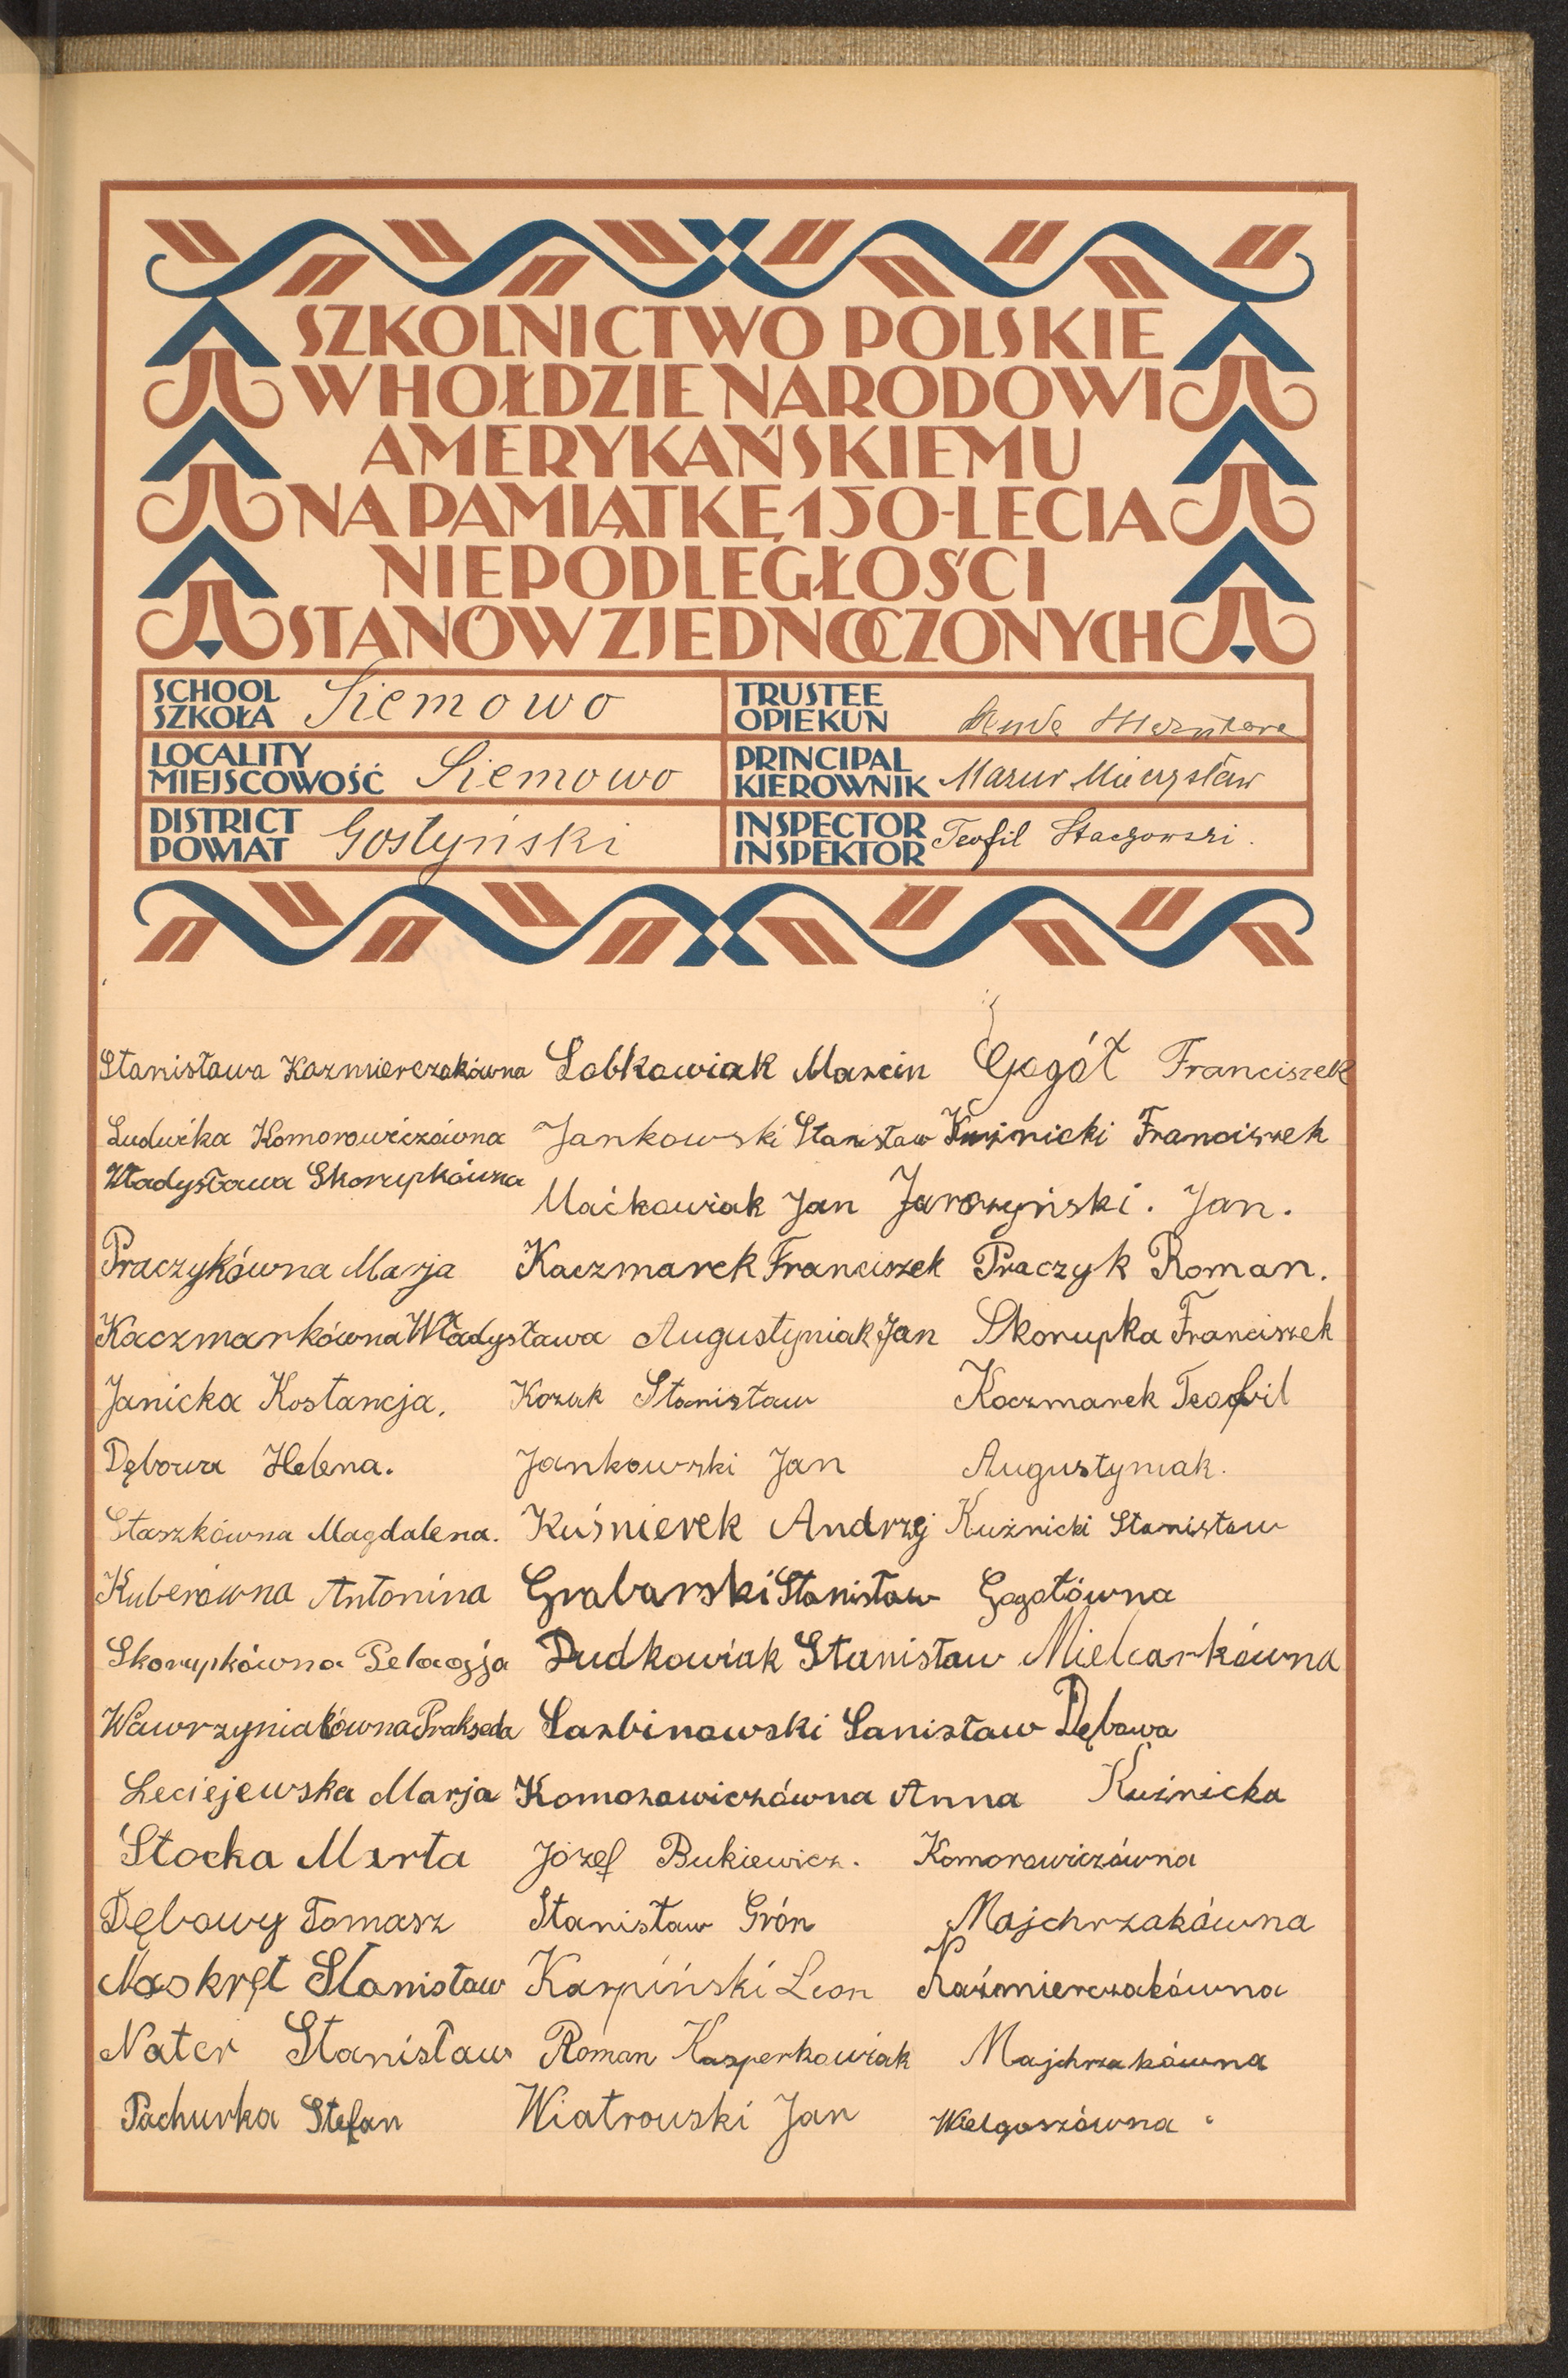 SZKOLNICTWO POLSKIE
W HOŁDZIE NARODOWI
AMERYKAŃSKIEMU
NA PAMIĄTKĘ 150-LECIA
NIEPODLEGŁOŚCI
STANÓW ZJEDNOCZONYCH
SCHOOL
SZKOŁA Siemowo
TRUSTEE
OPIEKUN
LOCALITY
MIEJSCOWOŚĆ Siemowo
PRINCIPAL
KIEROWNIK Mazur Mieczysław
DISTRICT
POWIAT Gostyński
INSPECTOR
INSPEKTOR Teofil
Stanisława Kazmierczakówna
Ludwika Komorowiczówna
Władysława Skorupkówna
Praczykówna Marja
Kaczmarkówna Władysława
Janicka Kostancja.
Dębowa Helena.
Staszkówna Magdalena.
Kuberówna Antonina
Skorupkówna Pelaogja
Wawrzyniakówna Prakseda
Leciejewska Marja
Stocka Marta
Dębowy Tomasz
Naskręt Stanisław
Nater Stanisław
Pachurka Stefan
Łabkowiak Marcin
Jankowski Stanisław
Maćkowiak Jan
Kaczmarek Franciszek
Augustyniak Jan
Kozak Stanisław
Jankowski Jan
Kuśnierek Andrzej
Grabarski Stanisław
Dudkowiak Stanisław
Sarbinowski Sanisław
Komorowiczówna Anna
Józef Bukiewicz.
Stanisław Grón
Karpiński Leon
Roman Kasperkowiak
Wiatrowski Jan
Gogół Franciszek
Kuźnicki Franciszek
Jaroszyński. Jan.
Praczyk Roman.
Skorupka Franciszek
Kaczmarek Teofil
Augustyniak.
Kuźnicki Stanisław
Gogołówna
Mielcarkówna
Dębowa
Kuźnicka
Komorowiczówna
Majchrzakówna
Kaźmierczakówna
Majchrzakówna
Wielgoszówna